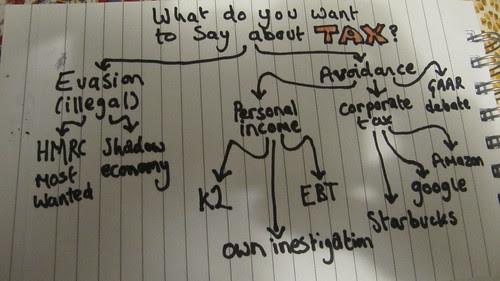 What do you want
to say about TAX?
Evasion
(illegal)
HMRC
Most
Wanted
Shadow
economy
Avoidance
Personal
income
K2
own inestigation
EBT
corporate
tax
Starbucks
google
Amazon
GAAR
debate